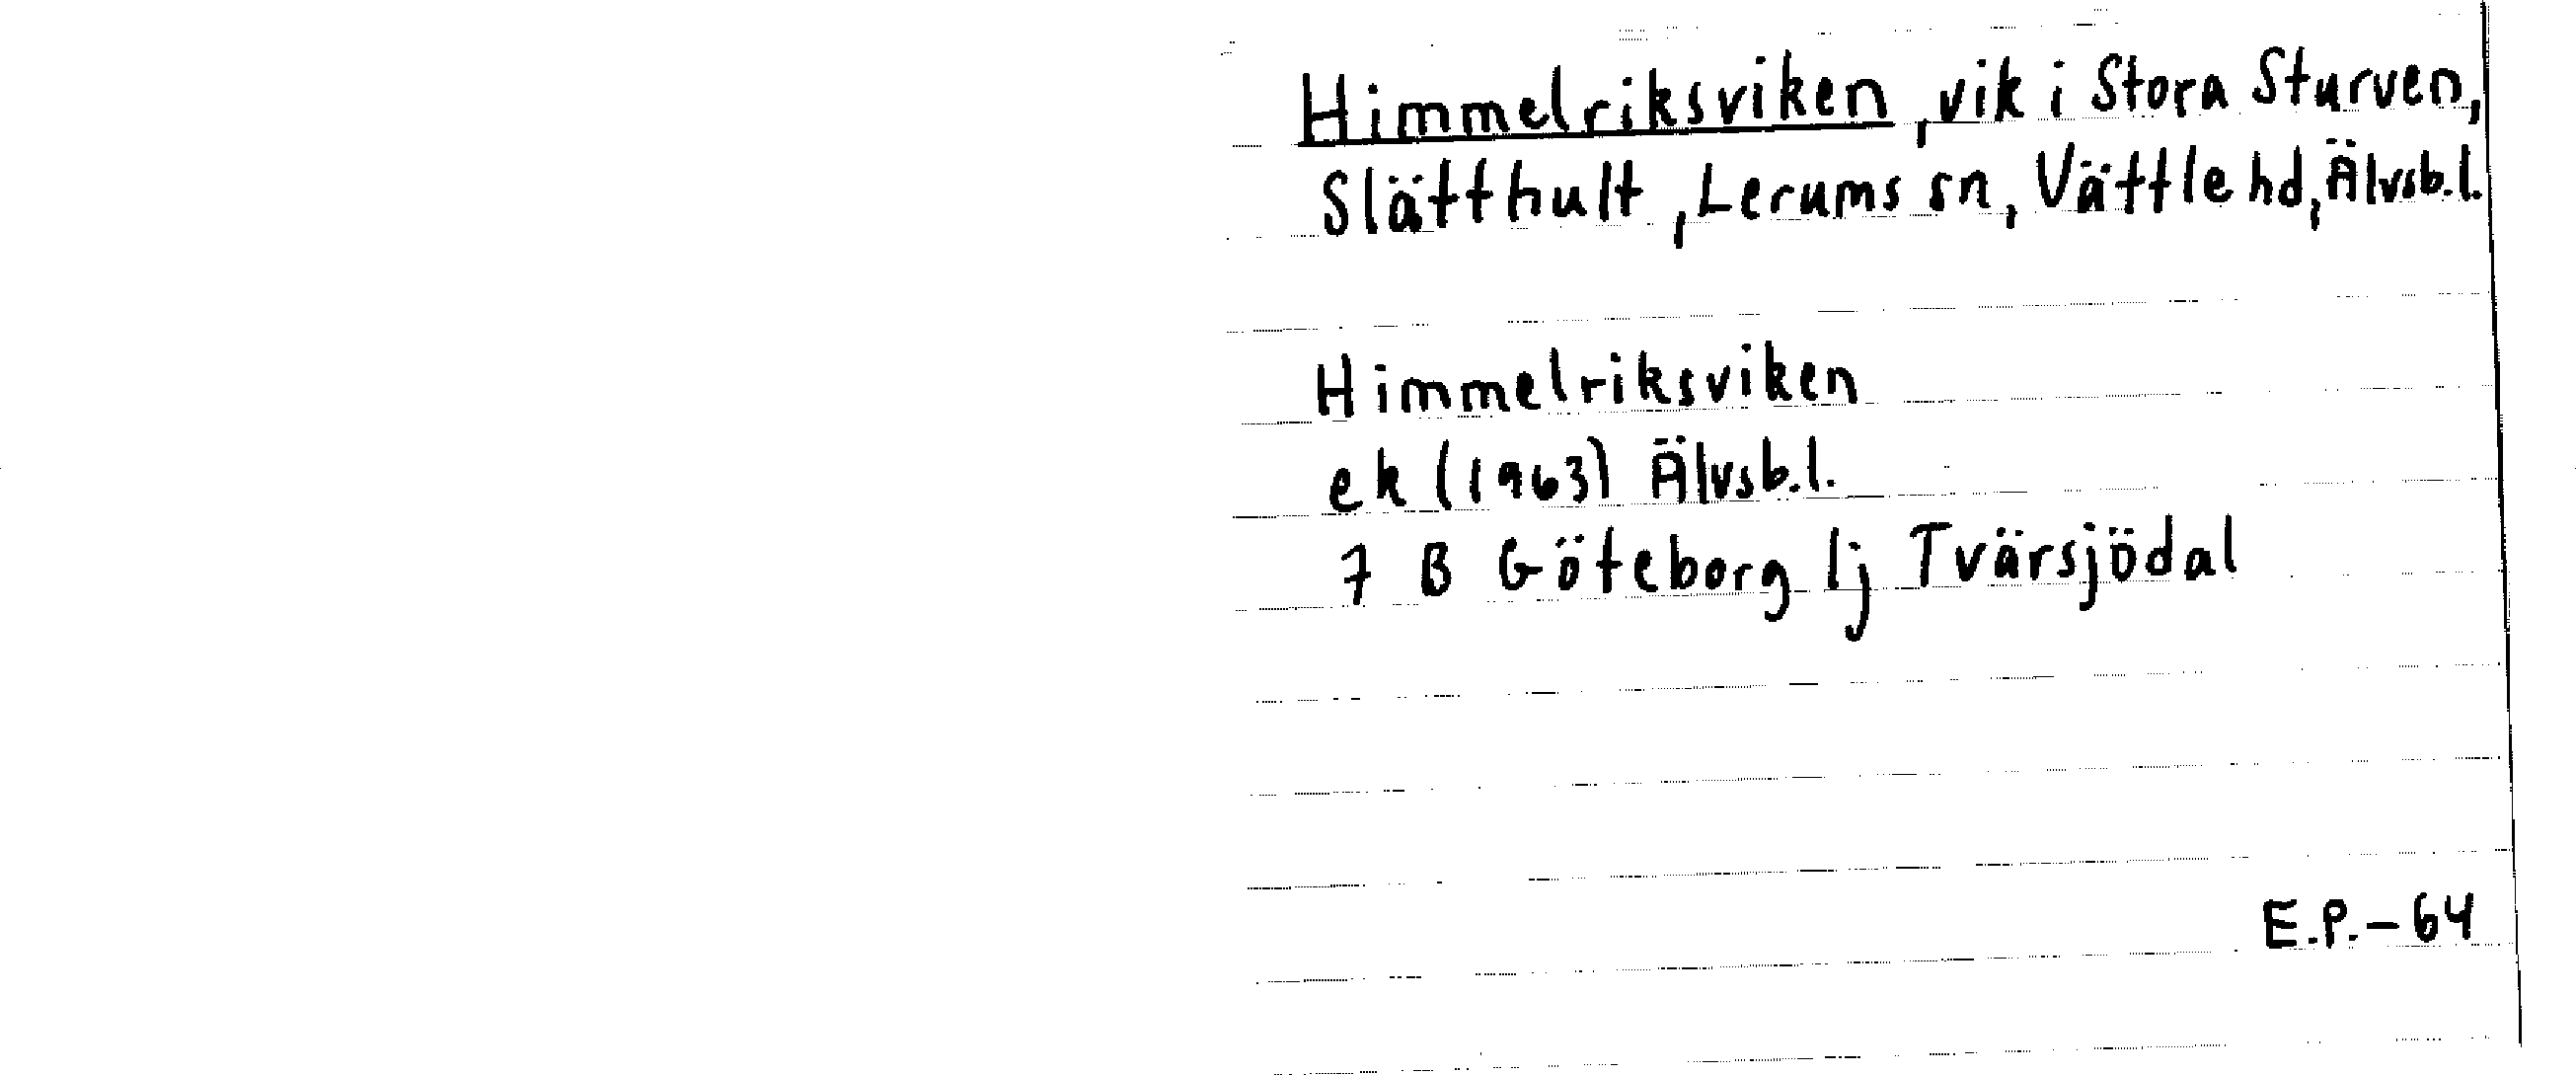 Himmelriksviken, vik i Stora Sturven,
Slätthult, Lerums sn, Vättle hd, Älvsb.l.
Himmelriksviken
ek (1963) Älvsb.l.
7 B Göteborg lj Tvärsjödal
E.P.-64